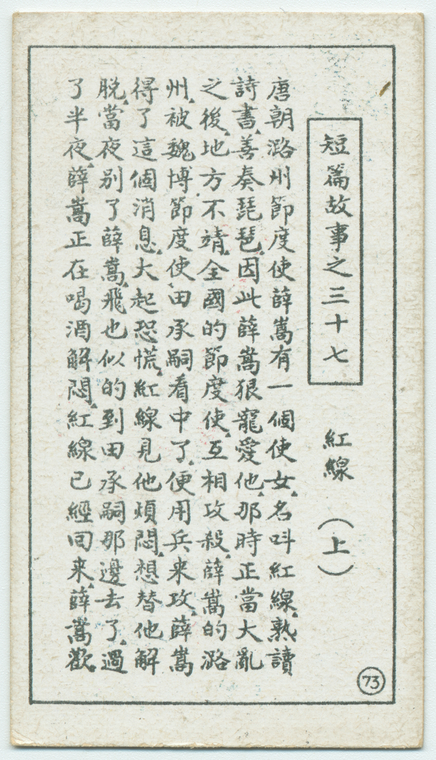 短篇故事之三十七
紅線 （上）
唐朝潞州節度使薛嵩有一個使女，名叫紅線，熟讀
詩書，善奏琵琶，因此薛嵩狠寵愛他，那時正當大亂
之後，地方不靖，全國的節度使，互相攻殺，薛嵩的潞
州，被魏博節度使田承嗣看中了，便用兵來攻，薛嵩
得了這個消息，大起恐慌，紅線見他煩悶，想替他解
脫，當夜别了薛嵩，飛也似的到田承嗣那邊去了，過
了半夜，薛嵩正在喝酒解悶，紅線已經回来，薛嵩歡
73